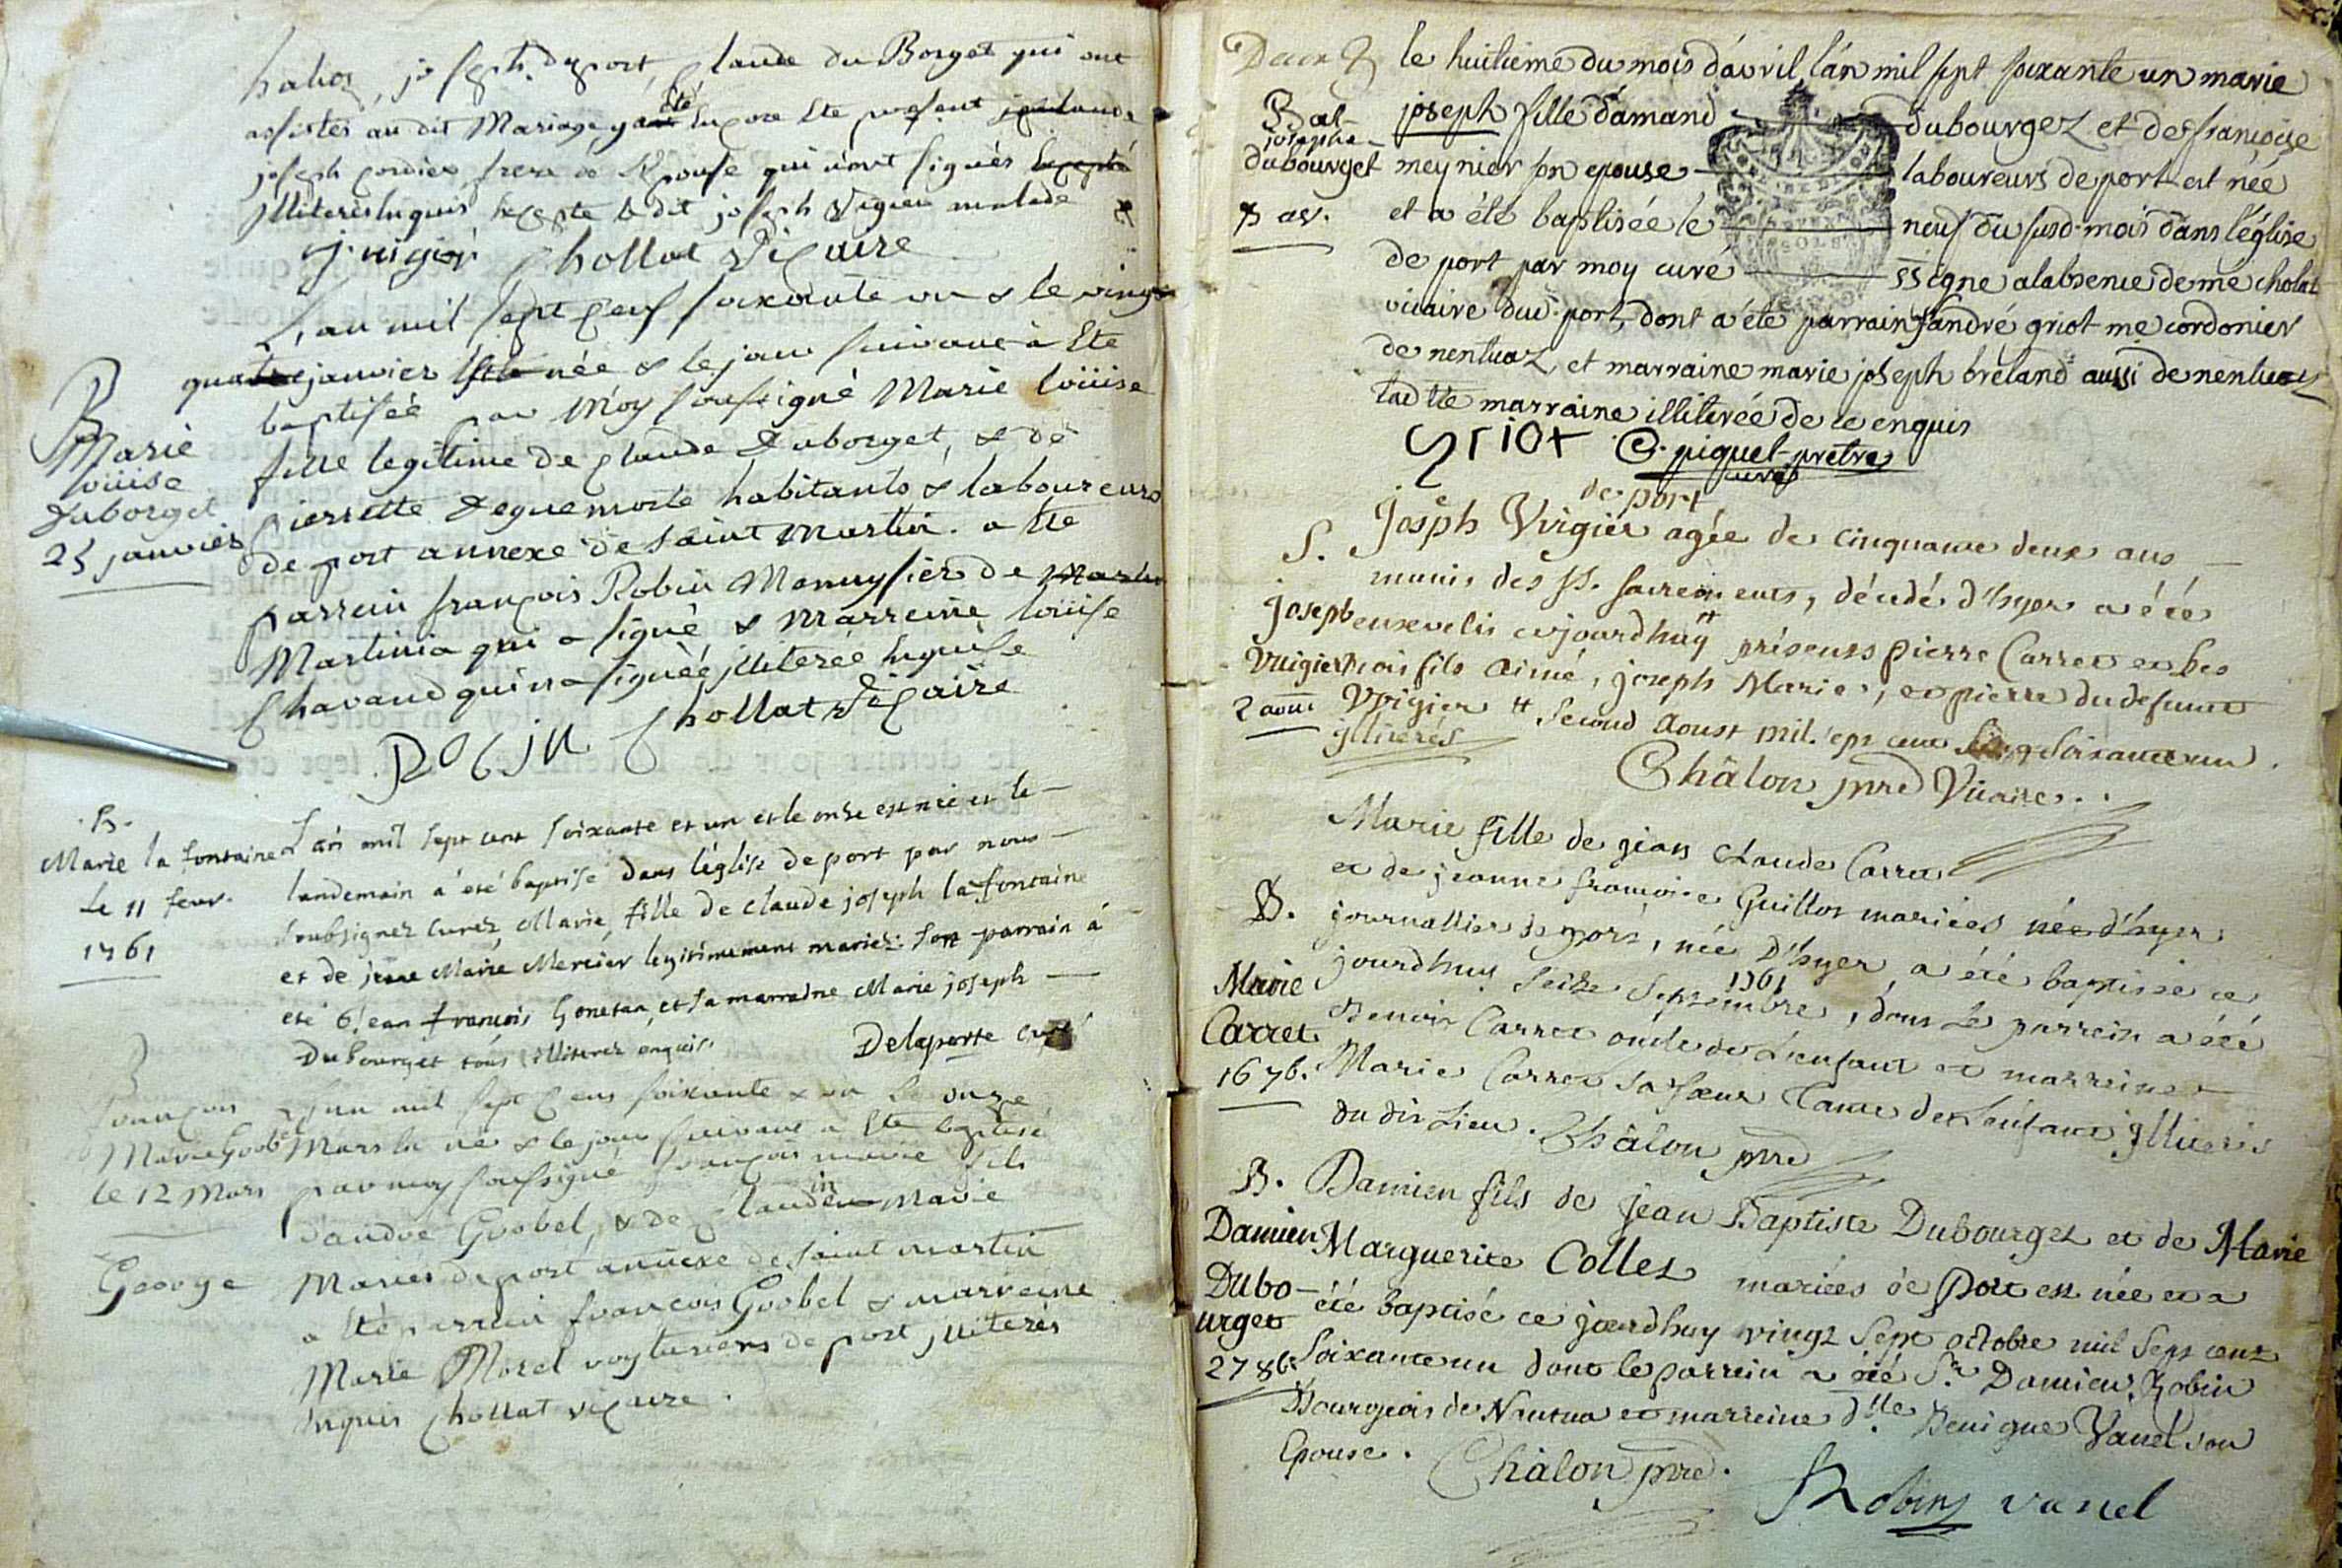 joseph duport, Claude du Borget qui ont
assistés au dit Mariage y été present
joseph Cordier frere de l'Epouse qui n'ont signés
jlliterés enquis excepté le dit joseph Vigier malade
j. vigier Chollat Vicaire
L'an mil sept cent soixante un & le vingt
quatre janvier est née & le jour suivant à Eté
baptisée par Moy soussigné Marie loüise
fille legitime de Claude Duborget, & de
pierrette Deguemorte habitants & laboureurs
de port annexe de saint Martin. a Eté
parrein françois Robin Menuysier de
Martinia qui a signé & Marreine loüise
Chavand qui n'a signéé jlliterée enquise
Robin Chollat Vicaire
B
Marie
loüise
Duborget
25 janvier
L'an mil sept cent soixante et un et le onze est née et le
landemain a été baptisé dans l'église de port par nous
soubsignez curez Marie, fille de claude joseph la fontaine
et de jeane Marie Mercier legitimement mariez son parrain á
eté jean francois Gonetan, et sa marraine Marie joseph
Dubourget tous illiterez enquis. Delaporte curé
B.
Marie la fontaine
Le 11 feur.
1761
L'an mil sept Cens soixante & un Le onze
Mars est né & le jour suivant a Eté baptisé
par moy soussigné françois marie fils
d'andré Goobel, & de Claudine Marie
Mariés de port annexe de saint martin
a Eté parrein francois Goobel & marreine
Marie Morel voyturiers de port jlliterés
Enquis Chollat vicaire.
françois
Marie Goobel
le 12 Mars
George
le huitieme du mois d'avril l'an mil sept soixante un marie
joseph fille d'amand dubourgez et de françoise
meynier son epouse laboureurs de port est née
et a été baptisée le neuf du susd. mois dans l'église
de port par moy curé ssigné a l'absence de me cholat
vicaire dud. port, dont a été parrain s. andré griot me cordonier
de nentuaz et marraine marie joseph breland aussi de nentuaz
lad.tte marraine illiterée de ce enquis
griot C. piquet pretre
curé
de port
Bat
josephe
dubourget
9 av.
Joseph Vvigier agée de cinquante deux ans
munis des ss. sacrements, décédé d'hyer a été
ensevelis aujourdhuy # présents pierre Carret et les
trois fils aimé, joseph Marie, et pierre du defunct
Vvigier # second Aoust mil sept cent soixante un.
jlliterés
Châlon pre Vicaire.
S.
Joseph
Vuigier
2 aoust
Marie fille de jean claude Carret
et de jeanne francoise Guillot mariées née d'hyer
journallier de port, née d'hyer, a été baptisée ce
jourdhuy seize septembre 1761, dont le parrein a été
Benoit Carret oncle de l'enfant et marreine
Marie Carret sa sœur Tante de l'enfant jlliterés
du dit Lieu. Châlon pre
B.
Marie
Carret
16 7b.
Damien fils de jean Baptiste Dubourget et de Marie
Marguerite Collet mariées de Port est née et a
été baptisé ce jourdhuy vingt sept octobre mil sept cent
soixante un dont le parrein a été Sr. Damien Robin
Bourgeois de Nantua et marreine dlle Benigne Vanel son
Epouse. Châlon pre.
Robin vanel
B.
Damien
Dubo-
urget
27 8b.